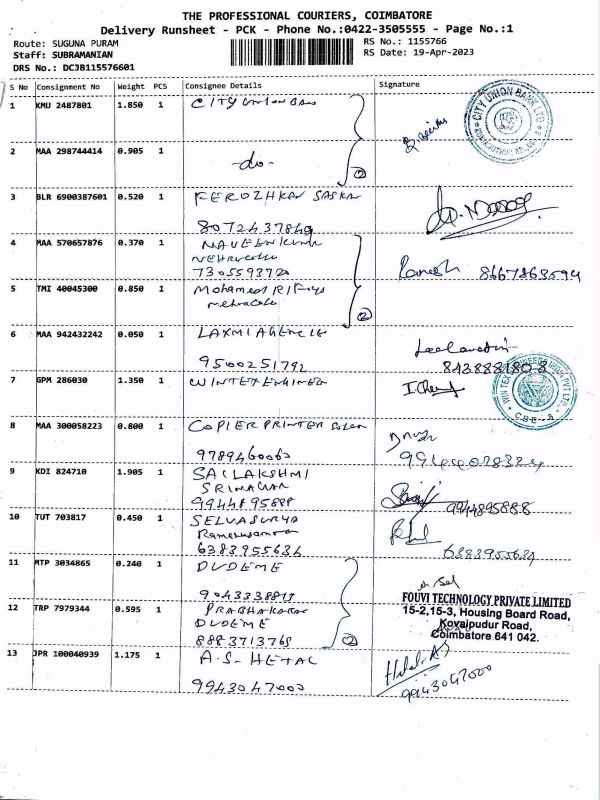 THE PROFESSIONAL COURIERS, COIMBATORE
Delivery Runsheet - PCK - Phone No.:0422-3505555 - Page No.:1
Route: SUGUNA PURAM
RS No.: 1155766
Staff: SUBRAMANIAN
RS Date: 19-Apr-2023
DRS No.: DC3B115576601
S No Consignment No Weight PCS Consignee Details Signature
1 KMU 2487801 1.850 1 CITY Union Ban
CITY UNION BANK LTD.
2 MAA 298744414 0.905 1 -do-
2
3 BLR 6900387601 0.520 1 FEROZHKAN SASKAN
8072437849
4 MAA 570657876 0.370 1 NAVEENKUMAR
Nehrucolle
7305593720
Ramesh 8667863594
5 TMI 40045300 0.850 1 Mohamed Rifays
nehrucolle
2
6 MAA 942432242 0.050 1 LAXMI AGENCIE
9500251792
Leelavathi
8438881808
7 GPM 286030 1.350 1 WINTEX ENGINEE
WINTEX ENGINEERS INDIA PVT LTD.
CBE - 8
8 MAA 300058223 0.800 1 COPIER PRINTER
9789460060
9 KDI 824710 1.905 1 SAI LAKSHMI
SRINAGAR
9944895888
9944895888
10 TUT 703817 0.450 1 SELVASURYA
Rameswaram
6383955634
6383955634
11 MTP 3034865 0.240 1 DUDEME
9043338813
12 TRP 7979344 0.595 1 PRABHAKARAN
DUDEME
8883713768
2
FOUVI TECHNOLOGY PRIVATE LIMITED
15-2,15-3, Housing Board Road,
Kovaipudur Road,
Coimbatore 641 042.
13 JPR 100040939 1.175 1 A.S- HETAL
9943047000
Hetal.AS
9943047000